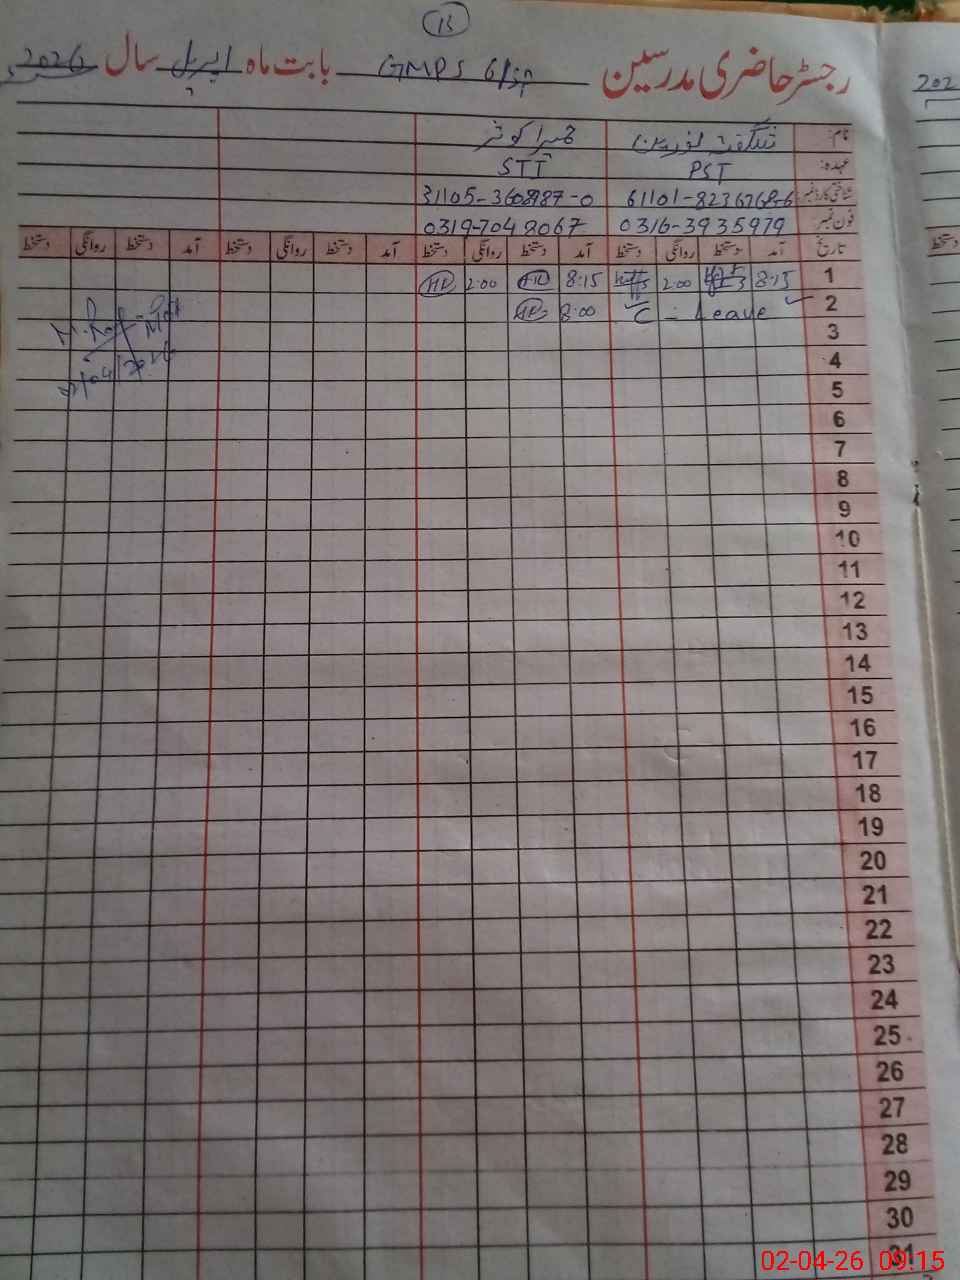 13
رجسٹر حاضری مدرسین GMPS 6/ بابت ماہ اپریل سال 2026
نام: شگفتہ نورین حمیرا کوثر
عہدہ: PST STI
شناختی کارڈ نمبر 61101-8236768-6 31105-3608987-0
فون نمبر 0316-3935979 0319-7048067
تاریخ آمد دستخط روانگی دستخط آمد دستخط روانگی دستخط آمد دستخط روانگی دستخط آمد دستخط روانگی دستخط
1 8:15 2:00 8:15 2:00
2 C - Leave 8:00
3
4
5
6
7
8
9
10
11
12
13
14
15
16
17
18
19
20
21
22
23
24
25
26
27
28
29
30
31
202
دستخط
02-04-26 09:15